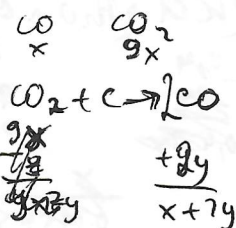 CO CO2
x 9x
CO2 + C → 2CO
9x
+2y
x + 7y